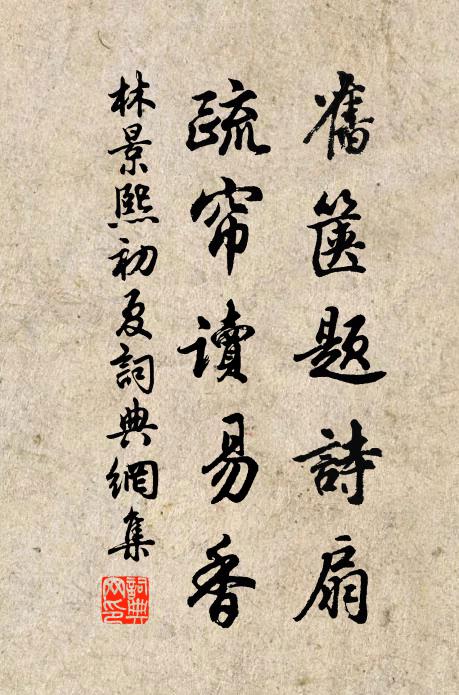 舊篋題詩扇
疏帘讀易香
林景熙初夏詞典網集
詞典网印